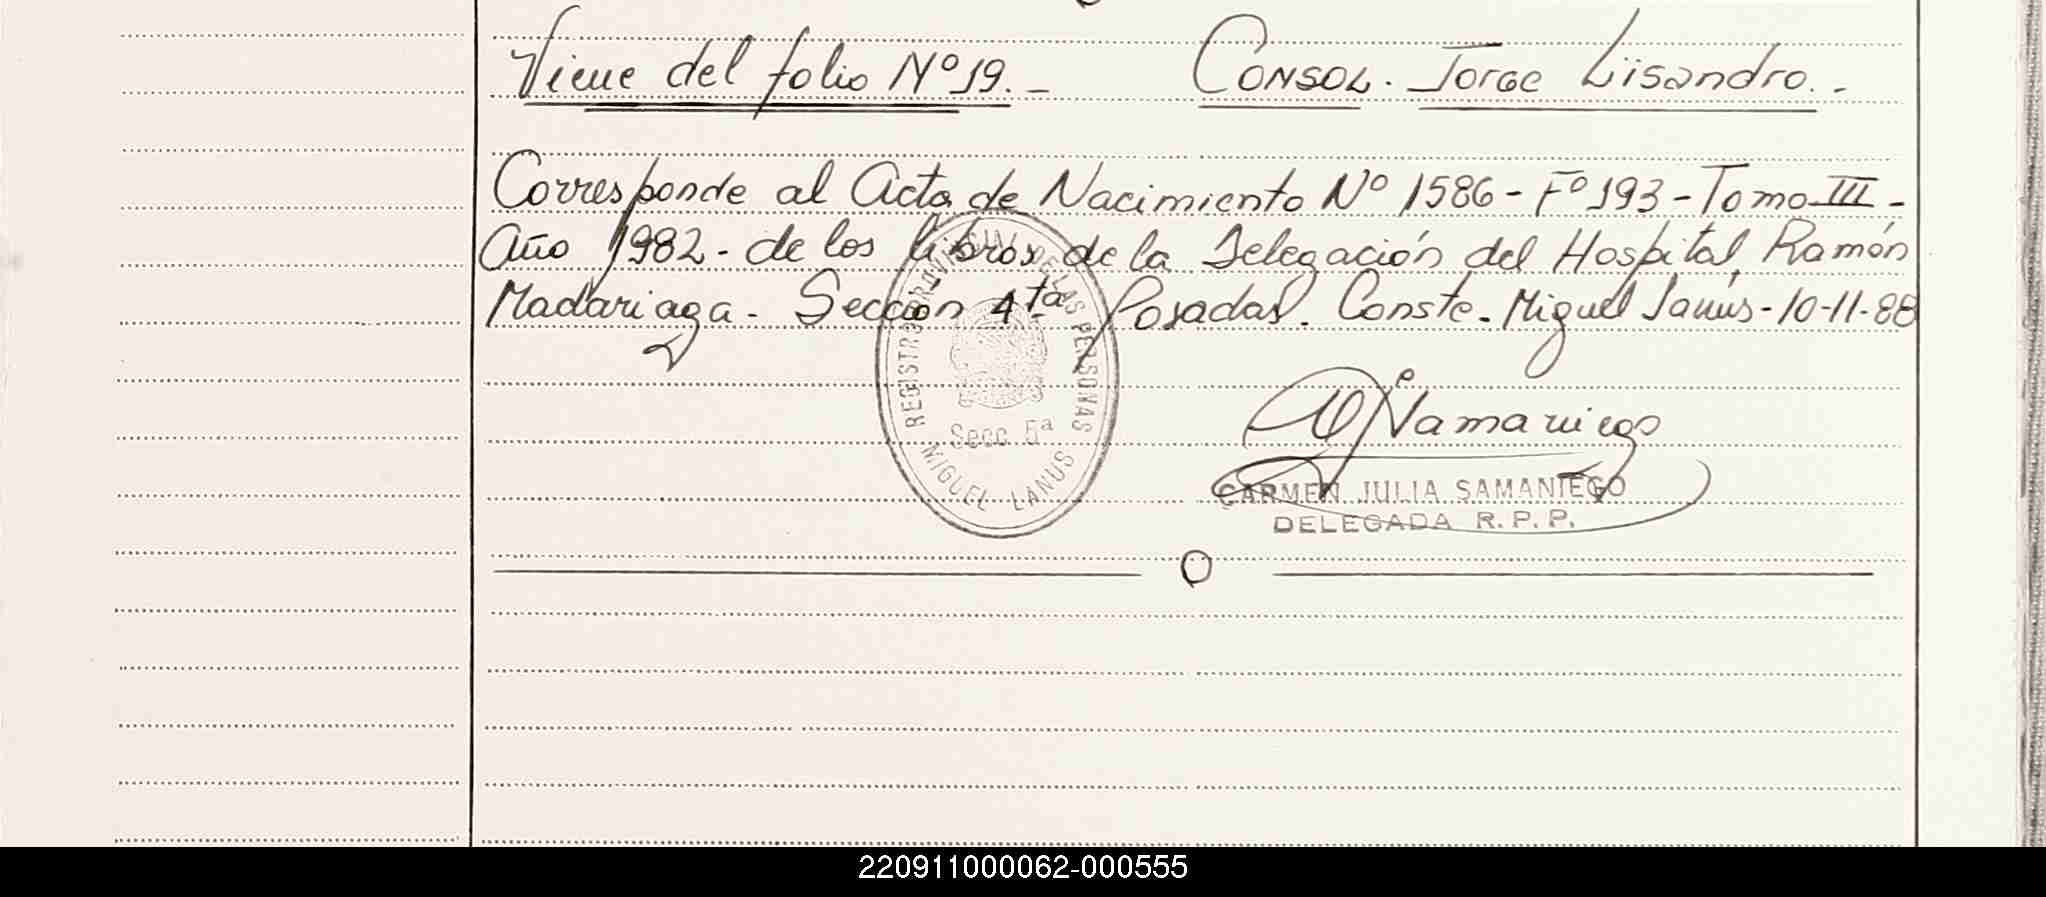 Viene del folio Nº 19.- CONSOL. Jorge Lisandro.-
Corresponde al Acta de Nacimiento Nº 1586 - Fº 193 - Tomo III -
Año 1982 - de los libros de la Delegación del Hospital Ramón
Madariaga - Sección 4ta Posadas. Conste. Miguel Lanús - 10-11-88
REGISTRO PROVINCIAL DE LAS PERSONAS
Secc. 5ª
MIGUEL LANUS
Samaniego
CARMEN JULIA SAMANIEGO
DELEGADA R. P. P.
220911000062-000555